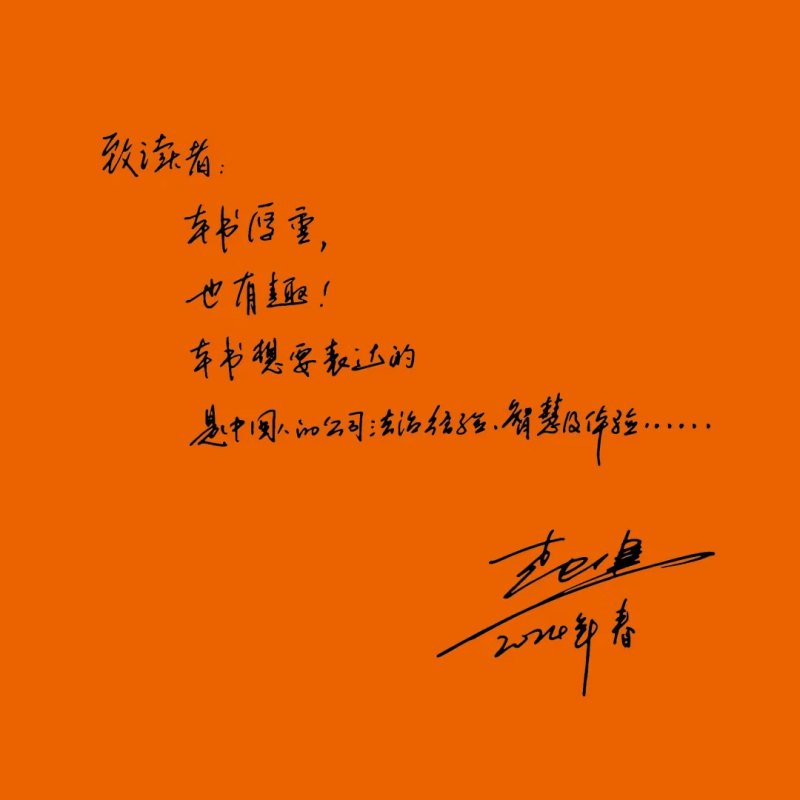 致读者：
本书厚重，
也有趣！
本书想要表达的
是中国人的公司法治经验、智慧及体验……
2024年春